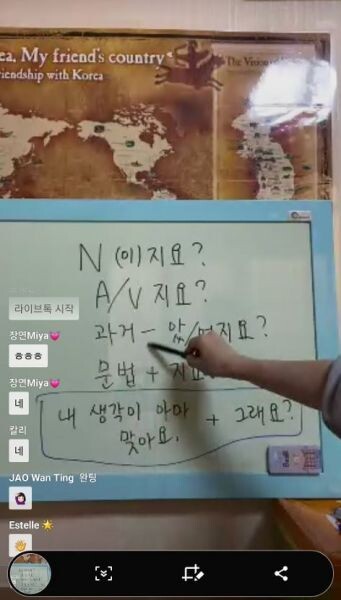 ea, My friend's country
riendship with Korea
The Vision
N (이)지요?
A/V 지요?
라이브톡 시작
과거 - 았/ 지요?
장연Miya💓
ㅎㅎㅎ
문법 + 지요
장연Miya💓
네
내 생각이 아마 + 그래요?
맞아요.
칼리
네
JAO Wan Ting 완팅
Estelle 🌟